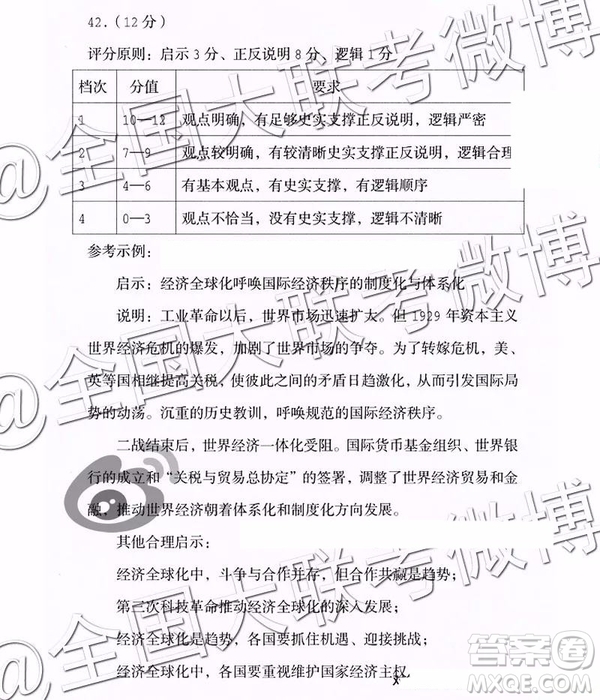 42.（12分）
评分原则：启示3分、正反说明8分、逻辑1分
档次 分值 要求
1 10—12 观点明确，有足够史实支撑正反说明，逻辑严密
2 7—9 观点较明确，有较清晰史实支撑正反说明，逻辑合理
3 4—6 有基本观点，有史实支撑，有逻辑顺序
4 0—3 观点不恰当，没有史实支撑，逻辑不清晰
参考示例：
启示：经济全球化呼唤国际经济秩序的制度化与体系化
说明：工业革命以后，世界市场迅速扩大。但1929年资本主义
世界经济危机的爆发，加剧了世界市场的争夺。为了转嫁危机，美、
英等国相继提高关税，使彼此之间的矛盾日趋激化，从而引发国际局
势的动荡。沉重的历史教训，呼唤规范的国际经济秩序。
二战结束后，世界经济一体化受阻。国际货币基金组织、世界银
行的成立和“关税与贸易总协定”的签署，调整了世界经济贸易和金
融，推动世界经济朝着体系化和制度化方向发展。
其他合理启示：
经济全球化中，斗争与合作并存，但合作共赢是趋势；
第三次科技革命推动经济全球化的深入发展；
经济全球化是趋势，各国要抓住机遇、迎接挑战；
经济全球化中，各国要重视维护国家经济主权
@全国大联考微博
@全国大联考微博
@全国大联考微博
答案圈